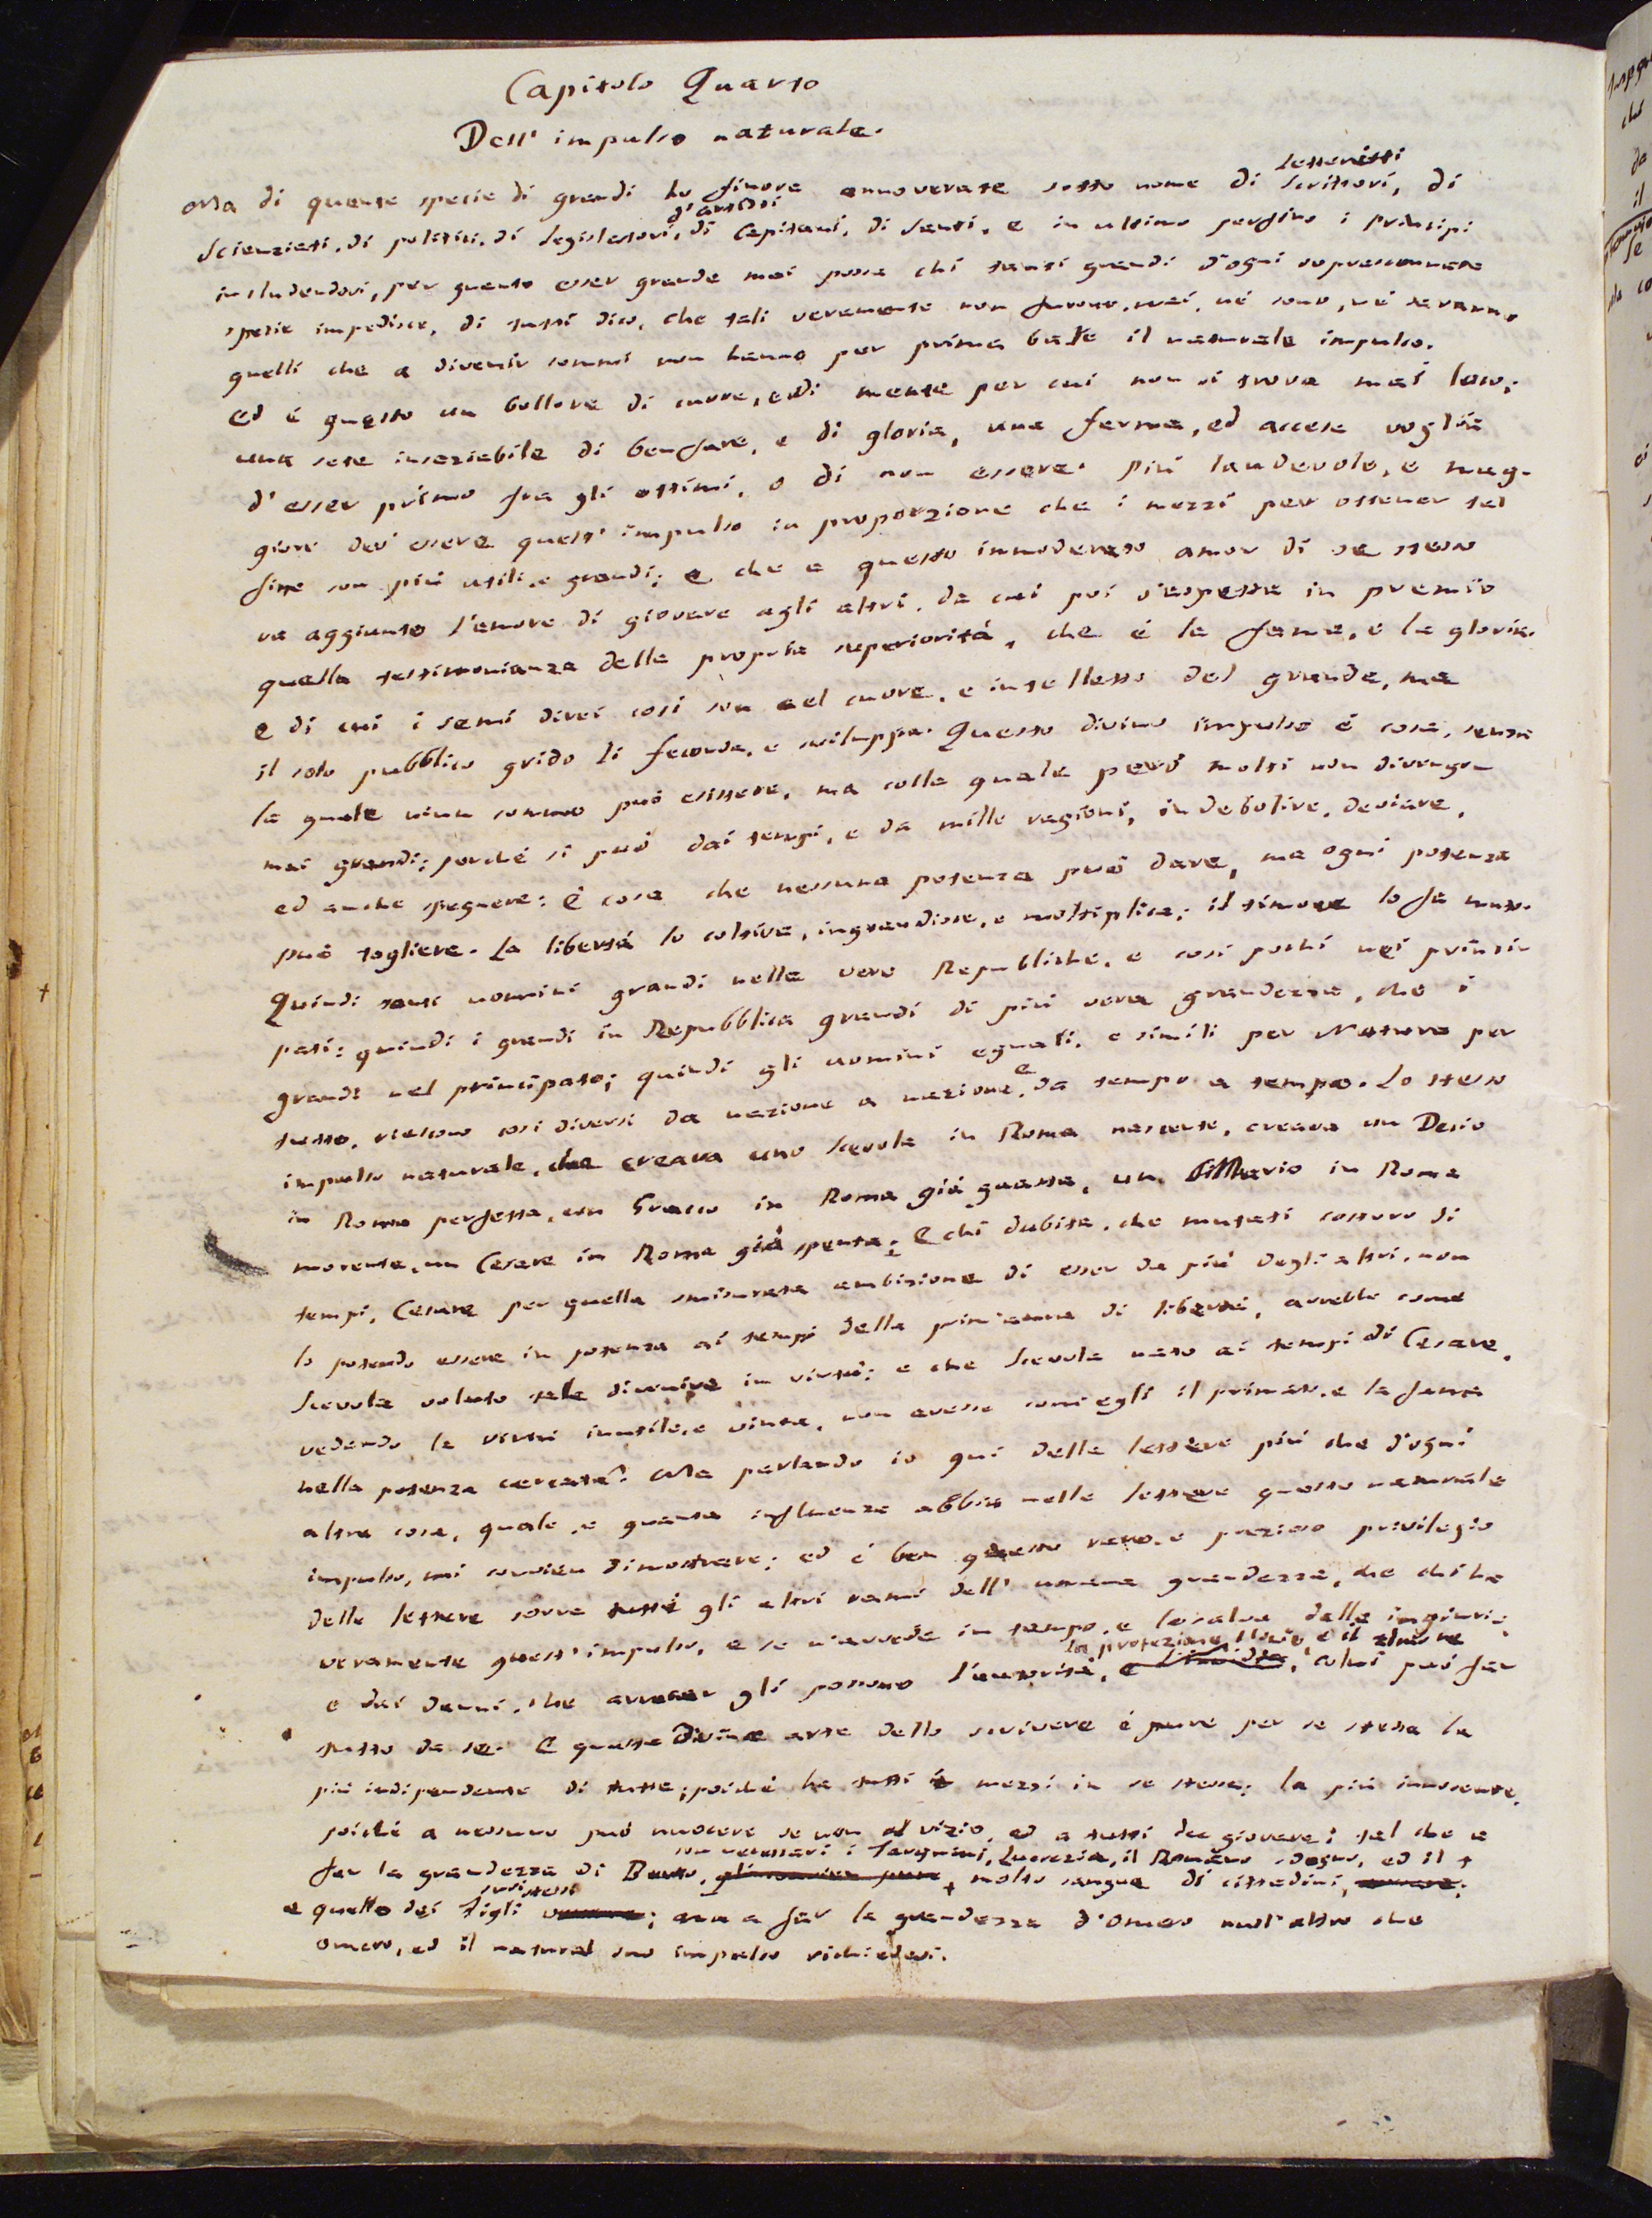 Capitolo Quarto
Dell' impulso naturale.
letterati
Ma di quante specie di grandi ho finora annoverate sotto nome di Scrittori, di
d'artisti
Scienziati, di politici, di legislatori, di Capitani, di Santi, e in ultimo perfino i principi
includendovi, per quanto esser grande mai possa chi tanti grandi d'ogni soprascennata
specie impedisce, di tutti dico, che tali veramente non furono mai, né sono, né saranno
quelli che a divenir sommi non hanno per prima base il naturale impulso.
Ed è questo un bollore di cuore, e di mente per cui non si trova mai loco;
una sete insaziabile di ben fare, e di gloria, una ferma, ed accesa voglia
d'esser primo fra gli ottimi, o di non essere. Più laudevole, e mag-
giore dev' essere quest' impulso in proporzione che i mezzi per ottener tal
fine son più utili, e grandi; e che a questo immoderato amor di se stesso
va aggiunto l'amore di giovare agli altri, da cui poi s'aspetta in premio
quella testimonianza della propria superiorità, che è la fama, e la gloria.
e di cui i semi direi così son nel cuore, e intelletto del grande, ma
il solo pubblico grido li feconda, e sviluppa. Questo divino impulso è cosa, senza
la quale niun sommo può esistere, ma colla quale però molti non divengon
mai grandi; perché si può dai tempi, e da mille ragioni, indebolire, deviare,
ed anche spegnere: è cosa che nessuna potenza può dare, ma ogni potenza
può togliere. La libertà lo coltiva, ingrandisce, e moltiplica; il timore lo fa muto.
Quindi tanti uomini grandi nelle vere Repubbliche, e così pochi nei princi-
pati: quindi i grandi in Repubblica grandi di più vera grandezza, che i
grandi nel principato; quindi gli uomini eguali, e simili per Natura per
e
tutto, riescono così diversi da nazione a nazione, da tempo a tempo. Lo stesso
impulso naturale, che creava uno Scevola in Roma nascente, creava un Decio
in Roma perfetta, un Gracco in Roma già guasta, un Mario in Roma
morente, un Cesare in Roma già spenta; E chi dubita, che mutati costoro di
tempi, Cesare per quella smisurata ambizione di esser da più degli altri, non
lo potendo essere in potenza ai tempi della prim'anna di libertà, avrebbe come
Scevola voluto tale divenire in virtù; e che Scevola nato ai tempi di Cesare,
vedendo la virtù inutile, e vinta, non avesse com'egli il primato, e la fama
nella potenza cercata? Ma parlando io qui delle lettere più che d'ogni
altra cosa, quale, e quanta influenza abbia nelle lettere questo naturale
impulso, mi convien dimostrare; ed è ben questo raro, e prezioso privilegio
delle lettere sovra tutti gli altri rami dell' umana grandezza, che chi ha
veramente quest' impulso, e se n'avvede in tempo, e lo salva dalle ingiurie,
la protezione, l'ozio, e il timore
e dai danni, che arrecar gli possono l'autorità, colui può far
tutto da se. E questa Divina arte dello scrivere è pure per se stessa la
più indipendente di tutte; poiché ha tutti i mezzi in se stessa; la più innocente,
poiché a nessuno può nuocere se non al vizio, ed a tutti dee giovare; tal che a
son necessari i Tarquini, Lucrezia, il Romano sdegno, ed il +
far la grandezza di Bruto, + molto sangue di cittadini,
suoi stessi
e quello dei figli; ma a far la grandezza d'Omero null'altro che
Omero, ed il natural suo impulso richiedesi.